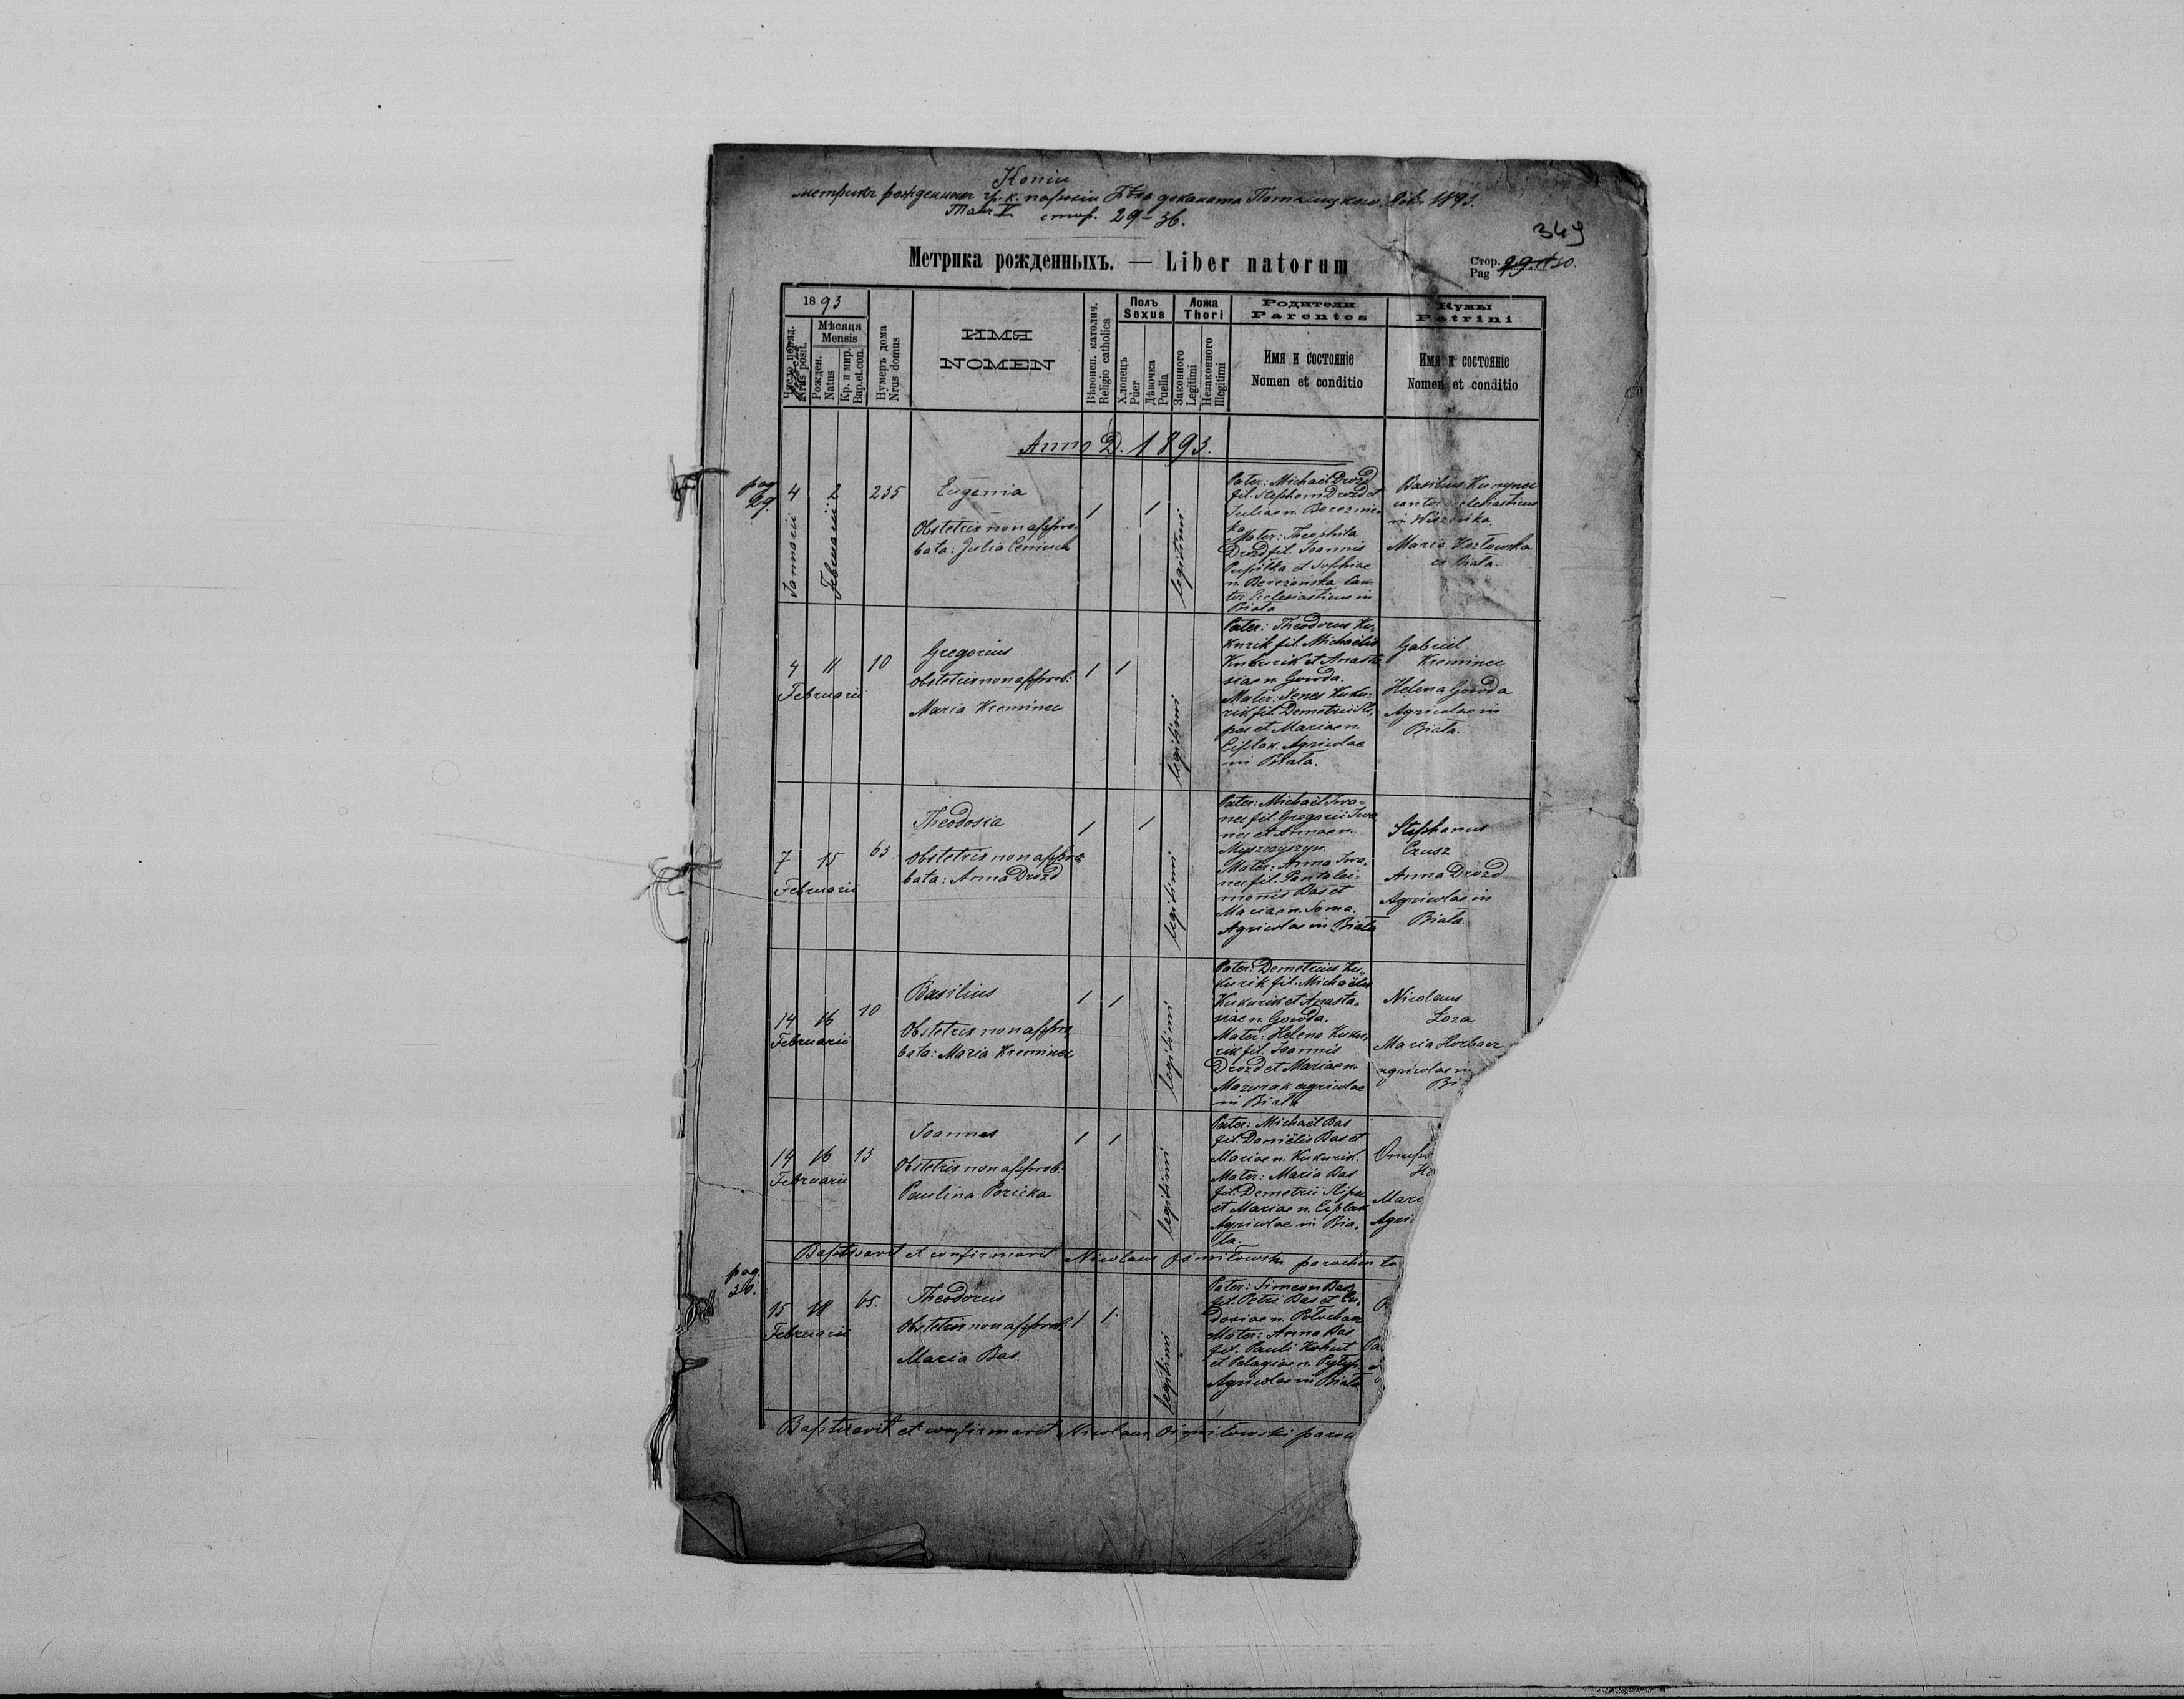 Копія
метрикъ рожденныхъ гр. к. парохіи Бѣла деканата Потылицкого. Рокъ 1893.
Томъ V стор. 29-36.
349
Метрика рожденныхъ. — Liber natorum
Стор.
Pag 29. et 30.
1893
Мѣсяця
Mensis
Число поряд.
Nrus posit.
Рожден.
Natus
Кр. и мир.
Bap. et con.
Нумеръ дома
Nrus domus
ИМЯ
NOMEN
Вѣроисп. католич.
Religio catholica
Полъ
Sexus
Хлопецъ
Puer
Дѣвочка
Puella
Ложа
Thori
Законного
Legitimi
Незаконного
Illegitimi
Родители
Parentes
Имя и состояніе
Nomen et conditio
Кумы
Patrini
Имя и состояніе
Nomen et conditio
Anno D. 1893.
pag.
29.
4 2 235
Januarii
Februarii
Eugenia
Obstetrix non appro-
bata: Julia
1 1
legitimi
Pater: Michael Drozd
fil. Stephani Drozd et
Juliae n.
Mater: Theophila
Drozd fil. Joannis
Pupilka et Sophiae
n. Berezanska Can-
tor Ecclesiasticus in
Biała
Basilius
cantor ecclesiasticus
in
Maria Kozłowska
ex Biała.
4 11 10
Februarii
Gregorius
Obstetrix non approb.
Maria Kreminec
1 1
legitimi
Pater: Theodorus Ku-
kurik fil. Michaëlis
Kukurik et Anasta-
siae n. Gowda.
Mater: Kuku-
rik fil. Demetrii Sli-
pec et Mariae n.
Ciplak. Agricolae
in Biała.
Gabriel
Kreminec
Helena Gowda
Agricolae in
Biała.
7 15 63
Februarii
Theodosia
Obstetrix non appro-
bata: Anna Drozd
1 1
legitimi
Pater: Michaël Iwa-
nec fil. Gregorii Iwa-
nec et Annae n.
Myszczyszyn.
Mater: Anna Iwa-
nec fil. Pantalei-
monis Bas et
Mariae n. Soma.
Agricolae in Biała
Stephanus
Czusz
Anna Drozd
Agricolae in
Biała.
14 16 10
Februarii
Basilius
Obstetrix non appro
bata: Maria Kreminec
1 1
legitimi
Pater: Demetrius Ku-
kurik fil. Michaëlis
Kukurik et Anasta-
siae n. Gowda.
Mater: Helena Kuku-
rik fil. Joannis
Drozd et Mariae n.
Mazurak agricolae
in Biała
Nicolaus
Łoza
Maria Horbacz
agricolae in
Bi
14 16 13
Februarii
Joannes
Obstetrix non approb.
Paulina Poricka
1 1
legitimi
Pater: Michaël Bas
fil. Daniëlis Bas et
Mariae n. Kukurik.
Mater: Maria Bas
fil. Demetrii Slipec
et Mariae n. Ciplak
Agricolae in Bia-
ła.
Mari
Agri
Baptisavit et confirmavit Nicolaus Osmiłowski parochus
pag.
30.
15 18 65.
Februarii
Theodorus
Obstetrix non approb.
Maria Bas.
1 1.
legitimi
Pater: Simeon Bas
fil. Petri Bas et Eu-
doxiae n.
Mater: Anna Bas
fil. Pauli Kohut
et Pelagiae n.
Agricolae in Biała
Baptisavit et confirmavit Nicolaus Osmiłowski paro